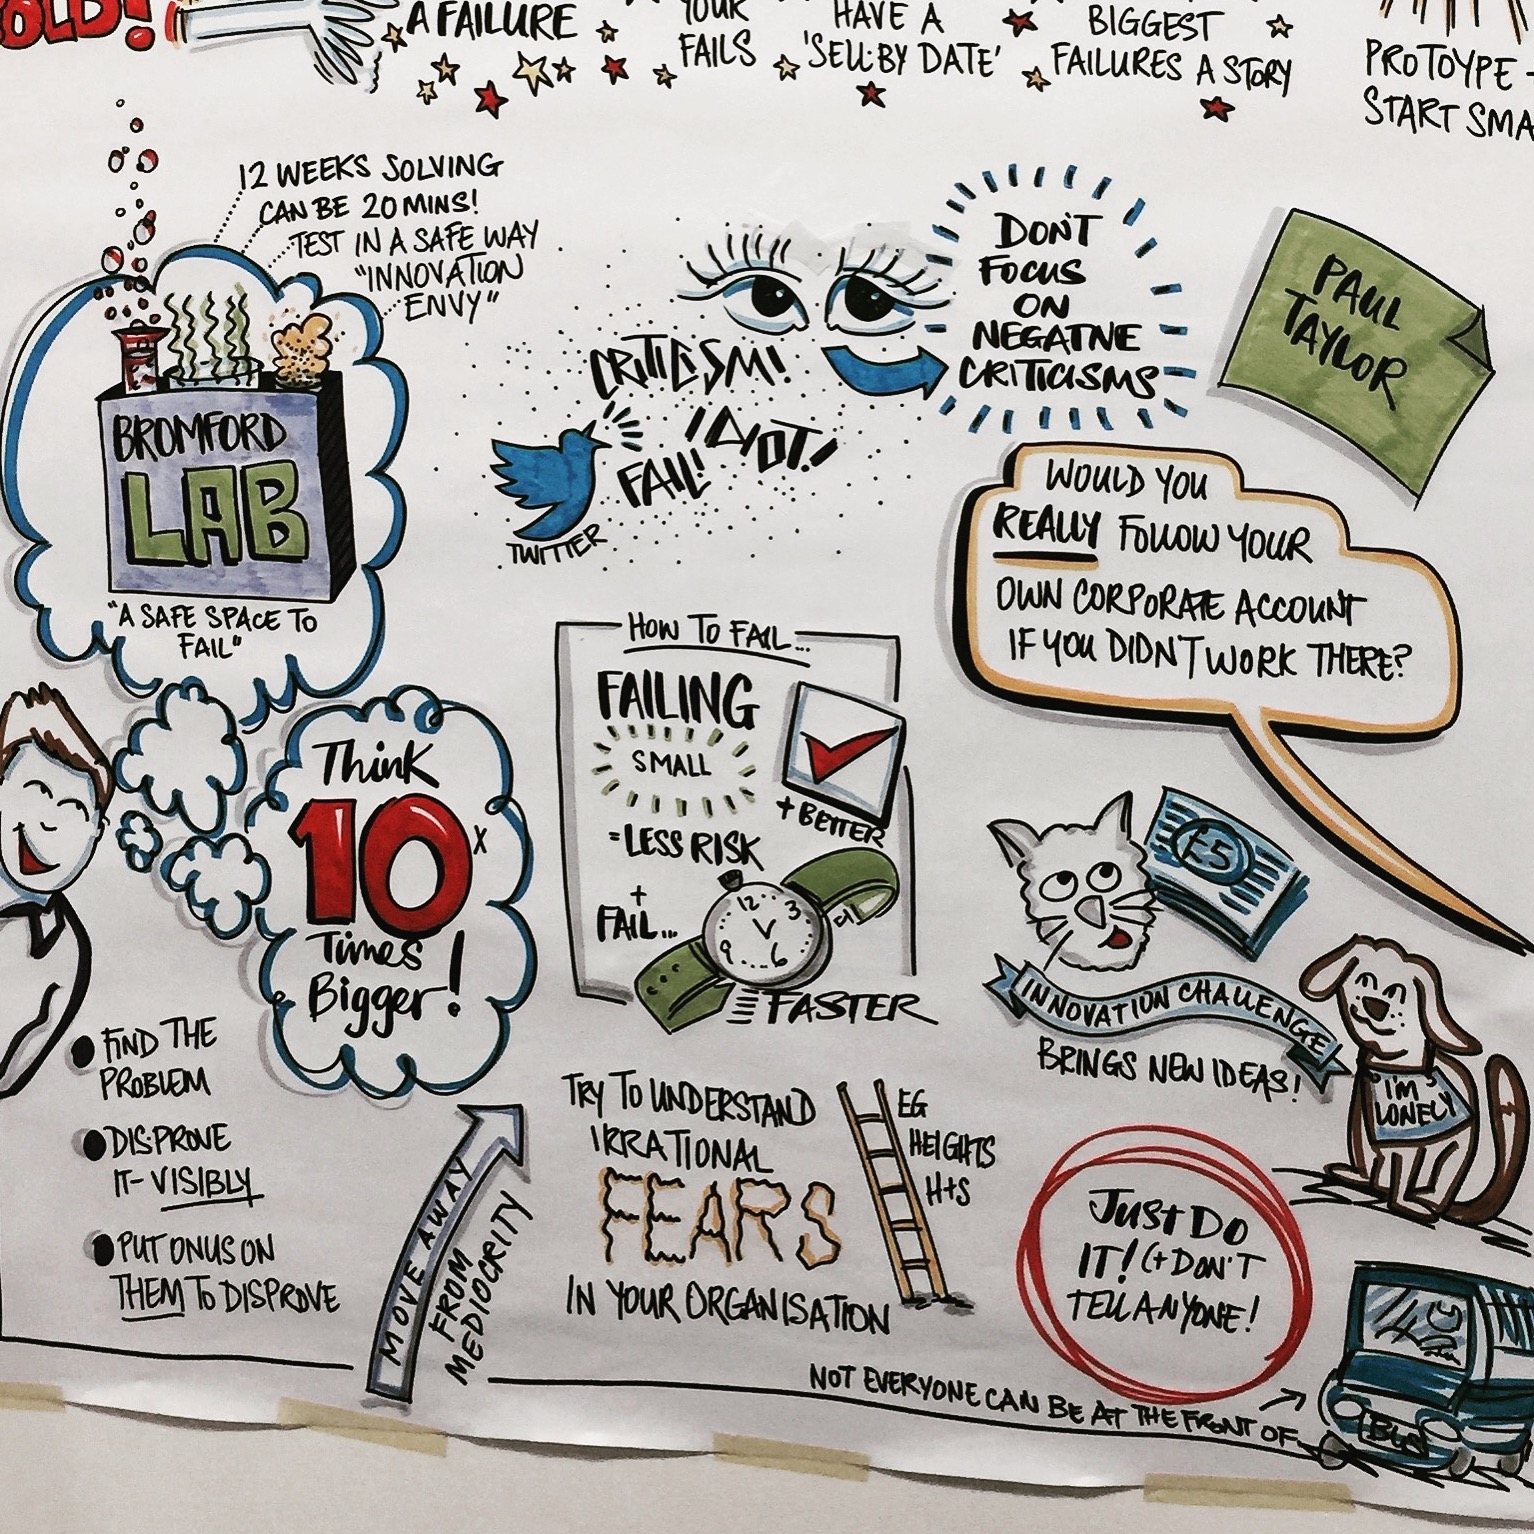 OLD!
A FAILURE
YOUR
FAILS
HAVE A
'SELL·BY DATE'
BIGGEST
FAILURES A STORY
PROTOYPE -
START SMA
12 WEEKS SOLVING
CAN BE 20 MINS!
TEST IN A SAFE WAY
"INNOVATION
ENVY"
BROMFORD
LAB
"A SAFE SPACE TO
FAIL"
CRITICISM!
IDIOT!
FAIL!
TWITTER
DON'T
FOCUS
ON
NEGATIVE
CRITICISMS
PAUL
TAYLOR
WOULD YOU
REALLY FOLLOW YOUR
OWN CORPORATE ACCOUNT
IF YOU DIDN'T WORK THERE?
Think
10x
Times
Bigger!
HOW TO FAIL...
FAILING
SMALL
= LESS RISK
+ BETTER
+
FAIL...
12
3
6
9
FASTER
£5
INNOVATION CHALLENGE
BRINGS NEW IDEAS!
I'M
LONELY
• FIND THE
PROBLEM
• DISPROVE
IT- VISIBLY
• PUT ONUS ON
THEM TO DISPROVE
MOVE AWAY
FROM
MEDIOCRITY
TRY TO UNDERSTAND
IRRATIONAL
FEARS
IN YOUR ORGANISATION
EG
HEIGHTS
H+S
JUST DO
IT! (+ DON'T
TELL ANYONE!
NOT EVERYONE CAN BE AT THE FRONT OF...
BUS